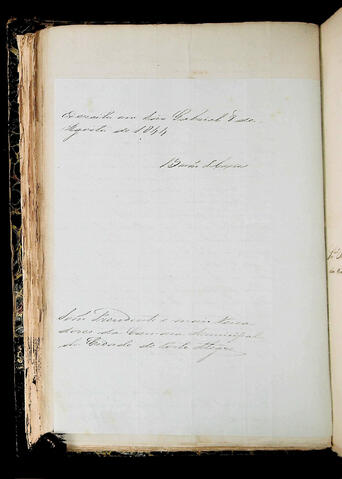 Exercito em São Gabriel 8 de
Agosto de 1844
Barão de Caxias
Snrs. Presidente e mais Verea
dores da Camara Municipal
da Cidade de Porto Alegre